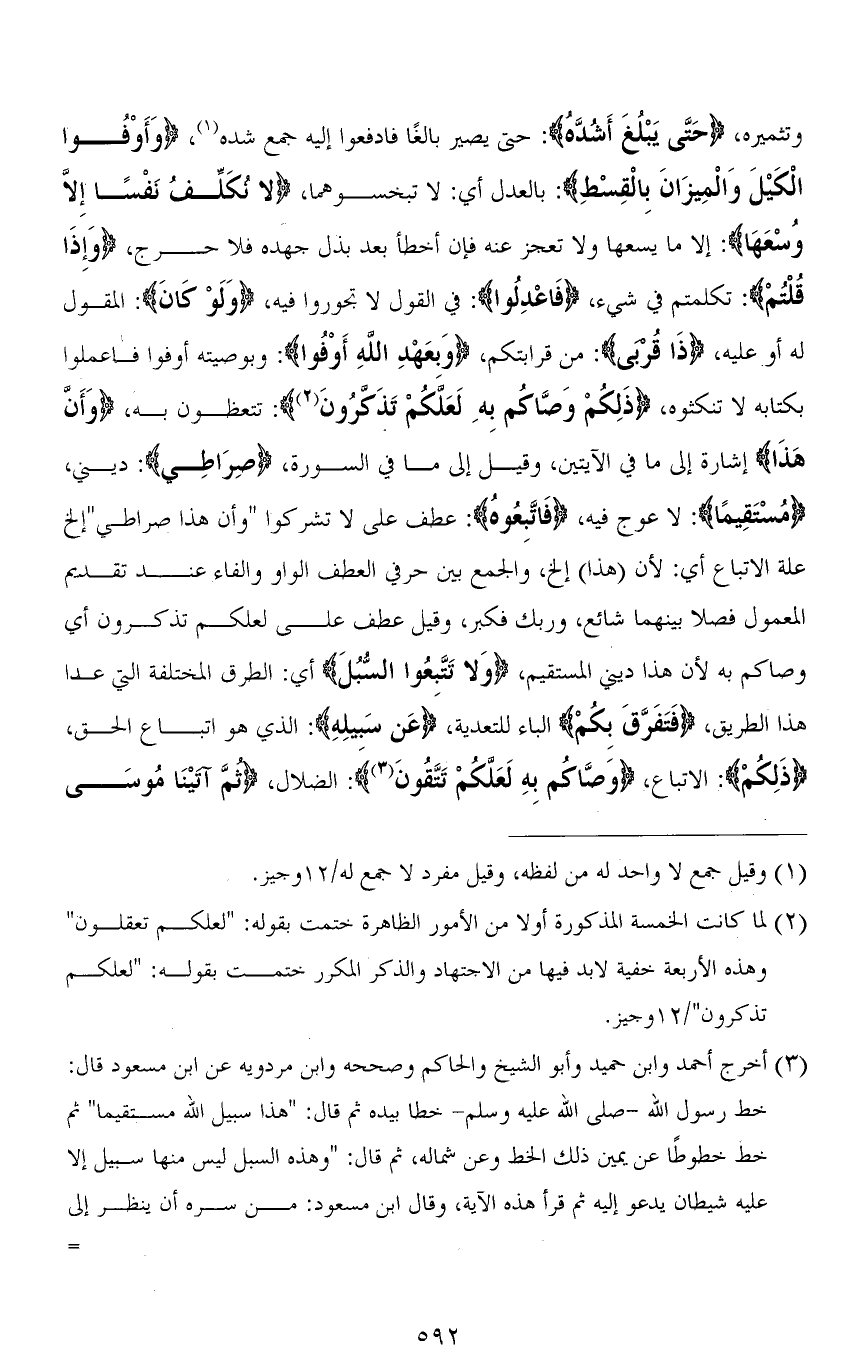 وتثميره، ﴿حَتَّى يَبْلُغَ أَشُدَّهُ﴾: حتى يصير بالغًا فادفعوا إليه جمع شده(١)، ﴿وَأَوْفُوا
الْكَيْلَ وَالْمِيزَانَ بِالْقِسْطِ﴾: بالعدل أي: لا تبخسوهما، ﴿لا نُكَلِّفُ نَفْسًا إِلاَّ
وُسْعَهَا﴾: إلا ما يسعها ولا تعجز عنه فإن أخطأ بعد بذل جهده فلا حرج، ﴿وَإِذَا
قُلْتُمْ﴾: تكلمتم في شيء، ﴿فَاعْدِلُوا﴾: في القول لا تجوروا فيه، ﴿وَلَوْ كَانَ﴾: المقول
له أو عليه، ﴿ذَا قُرْبَى﴾: من قرابتكم، ﴿وَبِعَهْدِ اللَّهِ أَوْفُوا﴾: وبوصيته أوفوا فاعملوا
بكتابه لا تنكثوه، ﴿ذَلِكُمْ وَصَّاكُم بِهِ لَعَلَّكُمْ تَذَكَّرُونَ(٢)﴾: تتعظون به، ﴿وَأَنَّ
هَذَا﴾ إشارة إلى ما في الآيتين، وقيل إلى ما في السورة، ﴿صِرَاطِي﴾: ديني،
﴿مُسْتَقِيمًا﴾: لا عوج فيه، ﴿فَاتَّبِعُوهُ﴾: عطف على لا تشركوا "وأن هذا صراطي"إلخ
علة الاتباع أي: لأن (هذا) إلخ، والجمع بين حرفي العطف الواو والفاء عند تقديم
المعمول فصلا بينهما شائع، وربك فكبر، وقيل عطف على لعلكم تذكرون أي
وصاكم به لأن هذا ديني المستقيم، ﴿وَلا تَتَّبِعُوا السُّبُلَ﴾ أي: الطرق المختلفة التي عدا
هذا الطريق، ﴿فَتَفَرَّقَ بِكُمْ﴾ الباء للتعدية، ﴿عَن سَبِيلِهِ﴾: الذي هو اتباع الحق،
﴿ذَلِكُمْ﴾: الاتباع، ﴿وَصَّاكُم بِهِ لَعَلَّكُمْ تَتَّقُونَ(٣)﴾: الضلال، ﴿ثُمَّ آتَيْنَا مُوسَى
(١) وقيل جمع لا واحد له من لفظه، وقيل مفرد لا جمع له/١٢وجيز.
(٢) لما كانت الخمسة المذكورة أولا من الأمور الظاهرة ختمت بقوله: "لعلكم تعقلون"
وهذه الأربعة خفية لابد فيها من الاجتهاد والذكر المكرر ختمت بقوله: "لعلكم
تذكرون"/١٢وجيز.
(٣) أخرج أحمد وابن حميد وأبو الشيخ والحاكم وصححه وابن مردويه عن ابن مسعود قال:
خط رسول الله -صلى الله عليه وسلم- خطا بيده ثم قال: "هذا سبيل الله مستقيما" ثم
خط خطوطًا عن يمين ذلك الخط وعن شماله، ثم قال: "وهذه السبل ليس منها سبيل إلا
عليه شيطان يدعو إليه ثم قرأ هذه الآية، وقال ابن مسعود: من سره أن ينظر إلى
=
٥٩٢